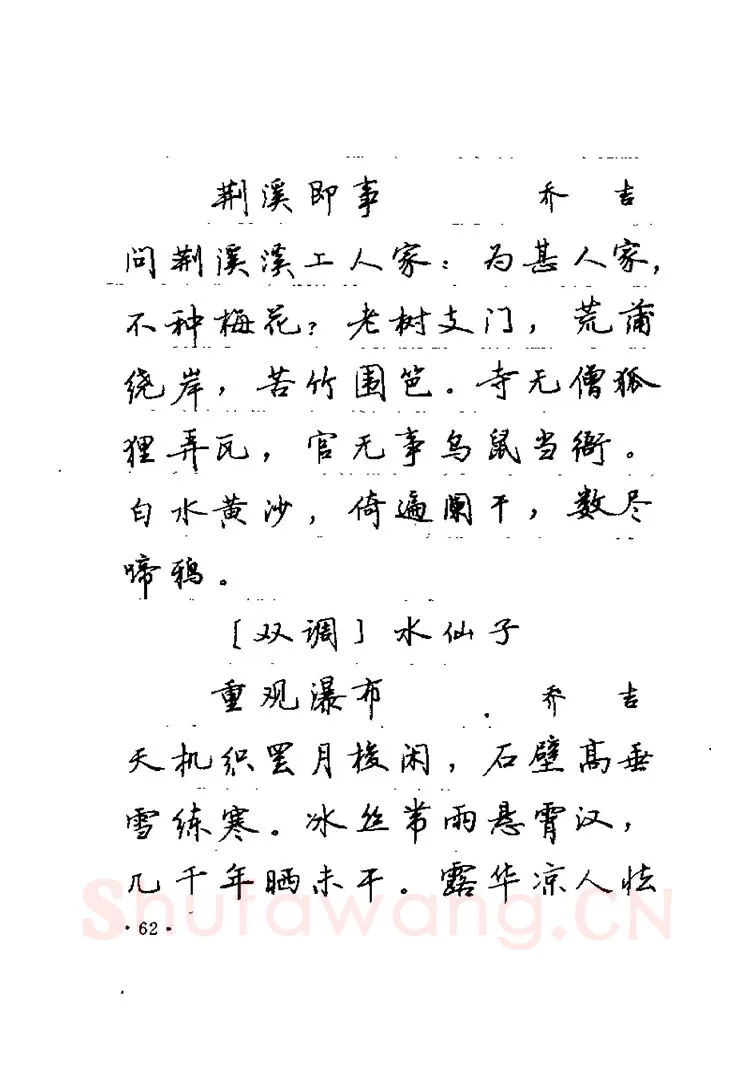 荆溪即事 乔吉
问荆溪溪上人家：为甚人家，
不种梅花？老树支门，荒蒲
绕岸，苦竹围笆。寺无僧狐
狸弄瓦，官无事乌鼠当衙。
白水黄沙，倚遍阑干，数尽
啼鸦。
［双调］水仙子
重观瀑布 乔吉
天机织罢月梭闲，石壁高垂
雪练寒。冰丝带雨悬霄汉，
几千年晒未干。露华凉人怯
·62·
Shufawang.CN